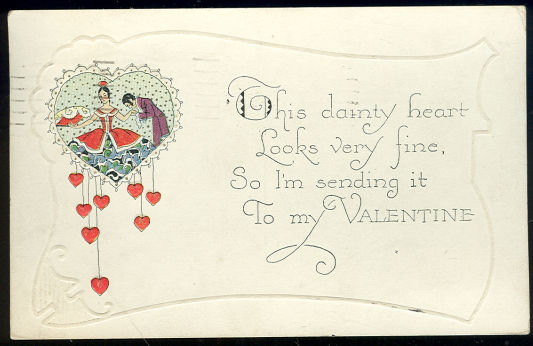 This dainty heart
Looks very fine,
So I'm sending it
To my VALENTINE